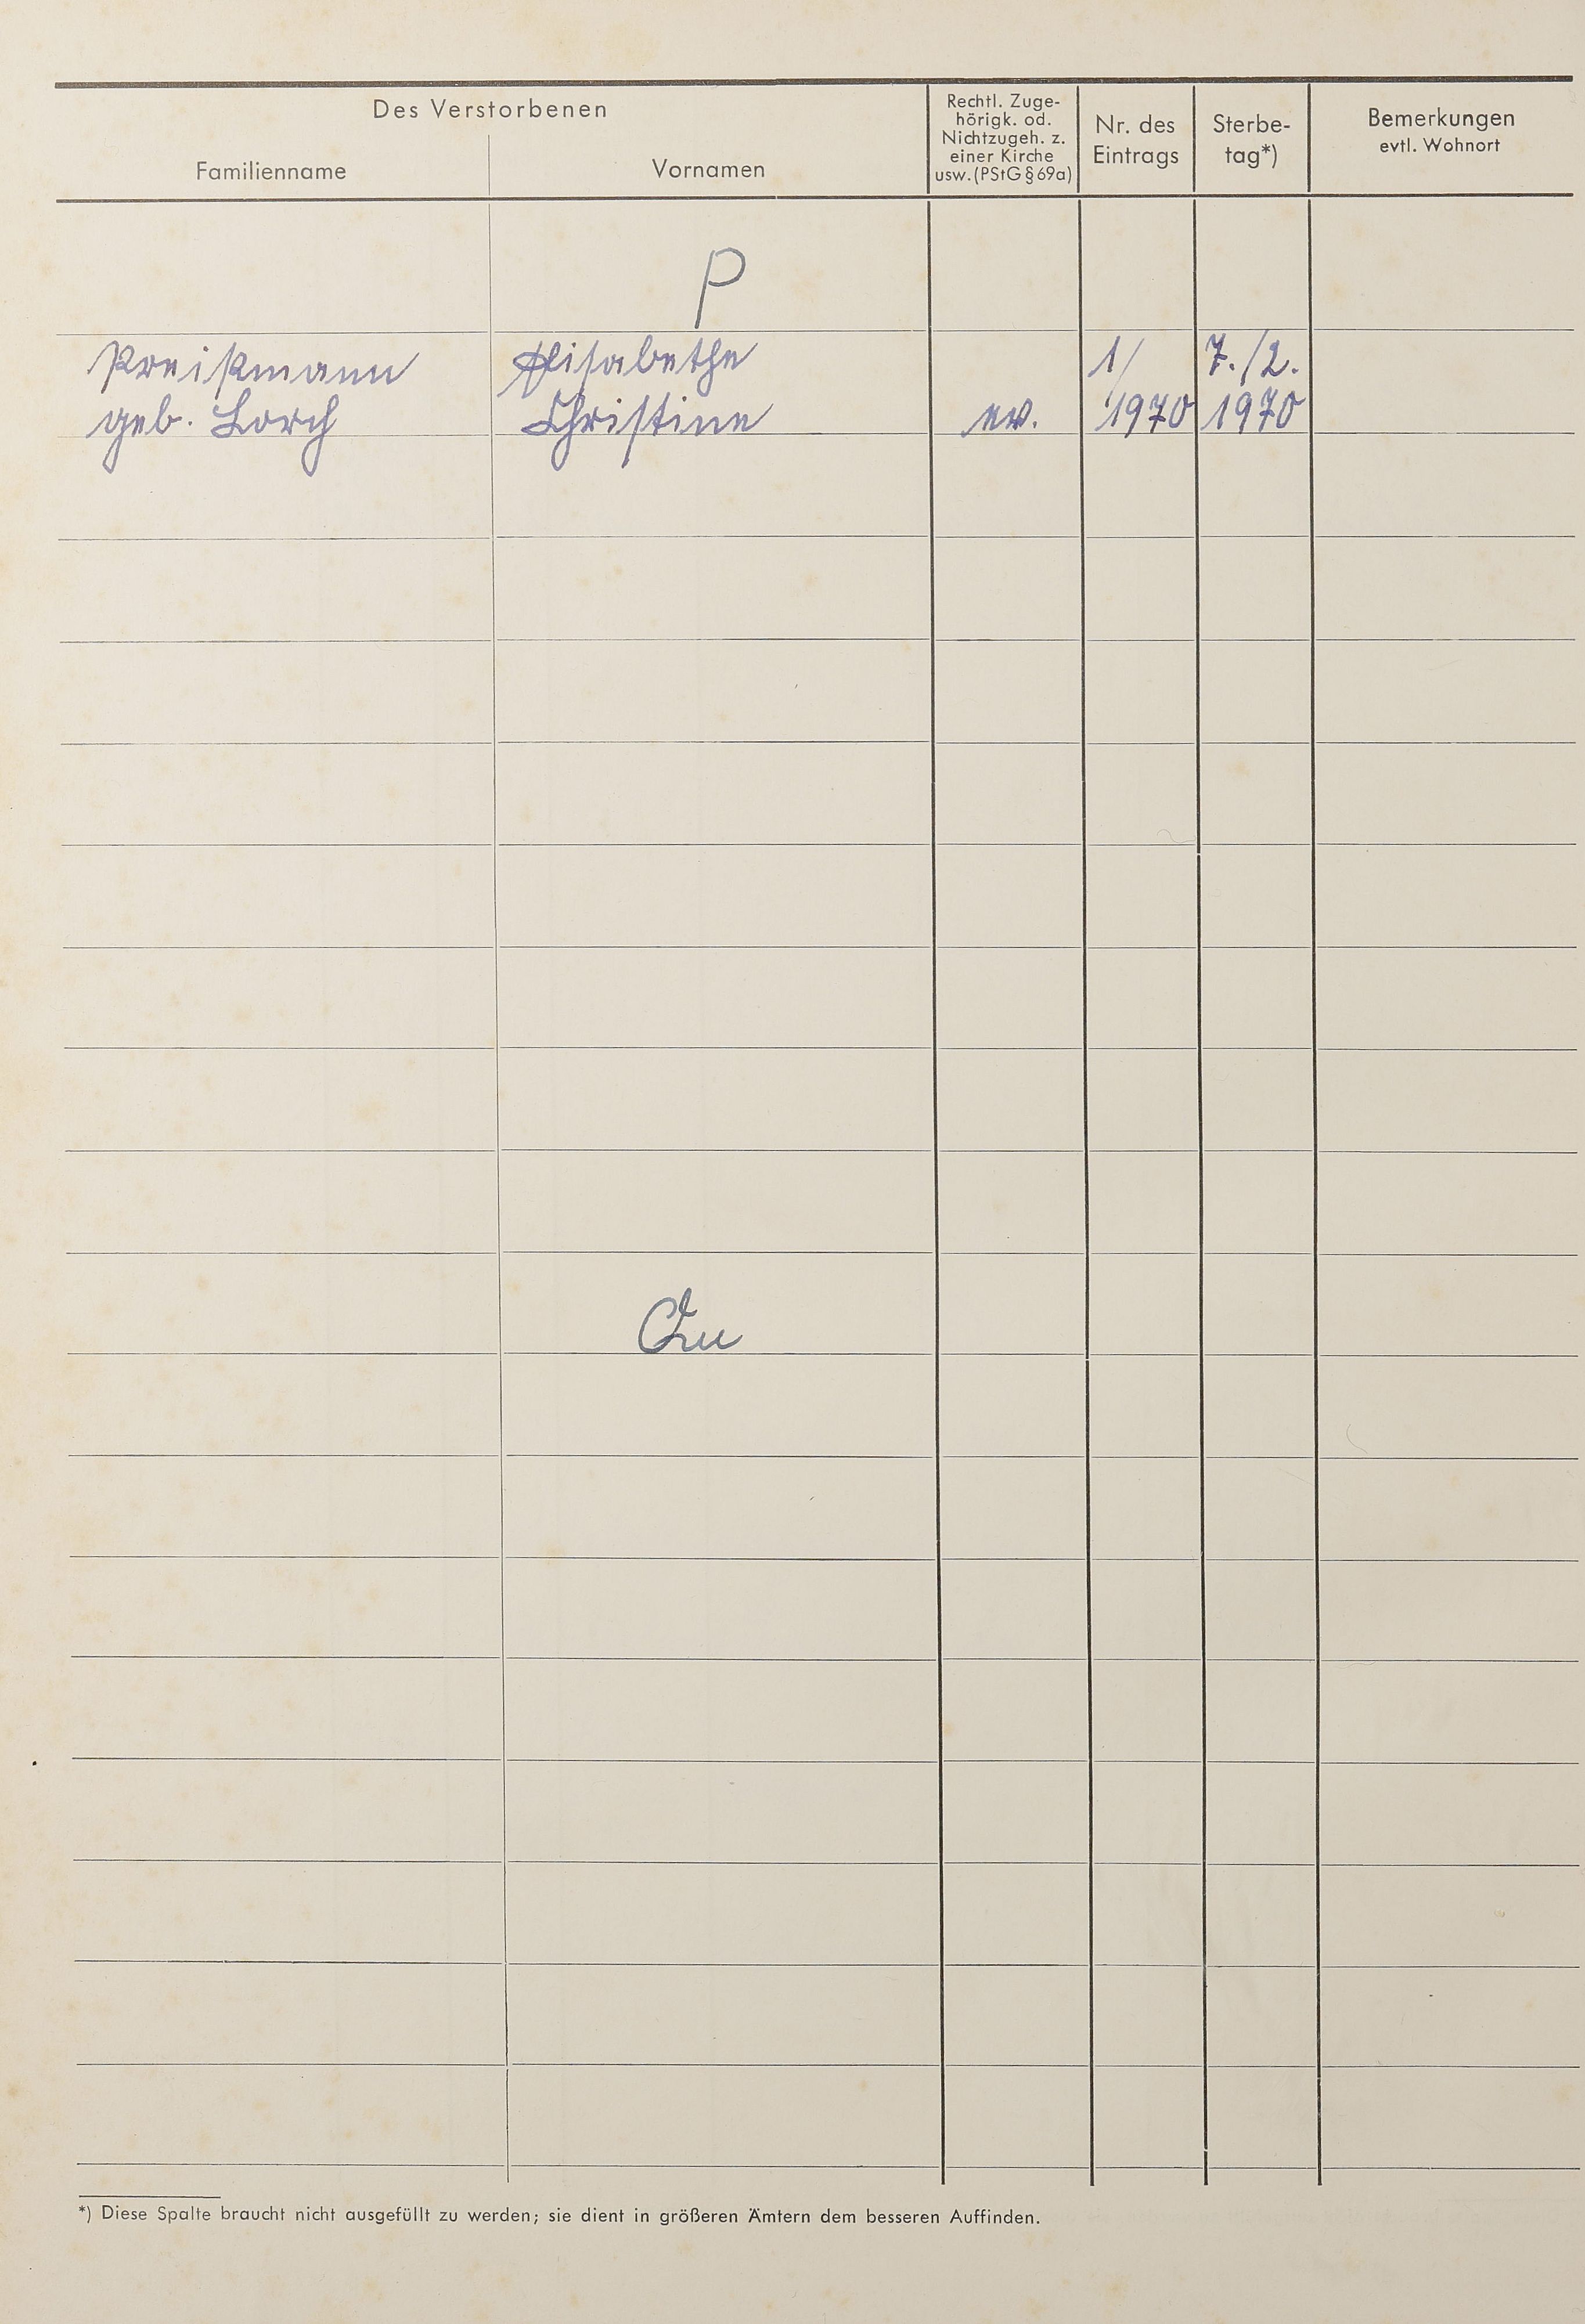 Des Verstorbenen
Familienname
Vornamen
Rechtl. Zuge-
hörigk. od.
Nichtzugeh. z.
einer Kirche
usw. (PStG § 69a)
Nr. des
Eintrags
Sterbe-
tag*)
Bemerkungen
evtl. Wohnort
P
Preißmann Elisabethe 1/ 7./2.
geb. Lorch Christine ev. 1970 1970
Qu
*) Diese Spalte braucht nicht ausgefüllt zu werden; sie dient in größeren Ämtern dem besseren Auffinden.